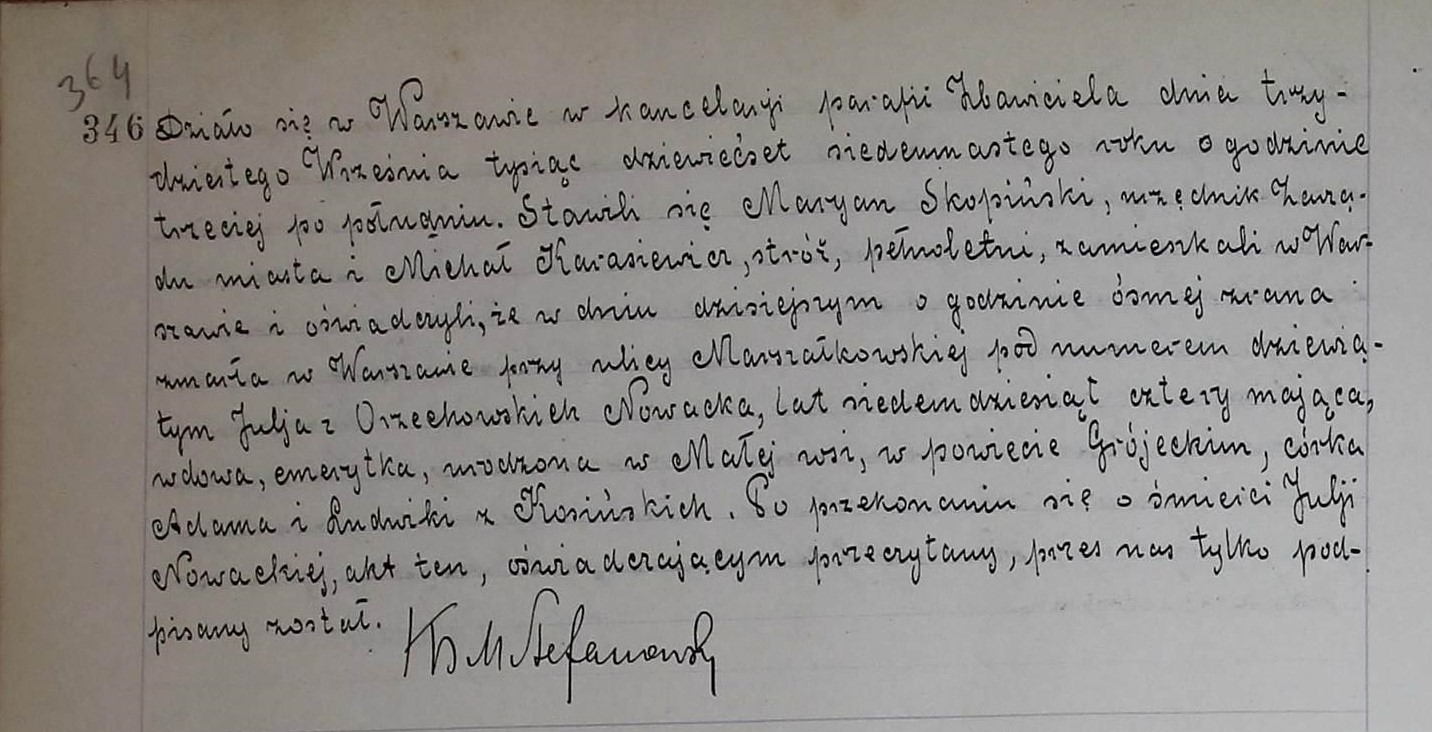 364
346 Działo się w Warszawie w kancelaryi parafii Zbawiciela dnia trzy-
dziestego Września tysiąc dziewięćset siedemnastego roku o godzinie
trzeciej po południu. Stawili się Maryan Skopiński, urzędnik Zarzą-
du miasta i Michał Karasiewicz, stróż, pełnoletni, zamieszkali w War-
szawie i oświadczyli, że w dniu dzisiejszym o godzinie ósmej zrana
zmarła w Warszawie przy ulicy Marszałkowskiej pod numerem dziewią-
tym Julja z Orzechowskich Nowacka, lat siedemdziesiąt cztery mająca,
wdowa, emerytka, urodzona w Małej wsi, w powiecie Grójeckim, córka
Adama i Ludwiki z Kosińskich. Po przekonaniu się o śmierci Julji
Nowackiej, akt ten, oświadczającym przeczytany, przez nas tylko pod-
pisany został.
Ks M Stefanowski